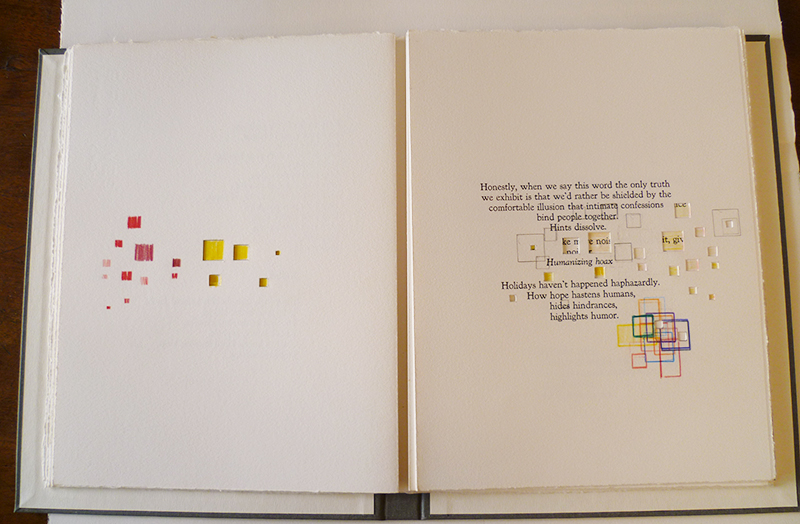 Honestly, when we say this word the only truth
we exhibit is that we'd rather be shielded by the
comfortable illusion that intimate confessions
bind people together.
Hints dissolve.
ke n e nois it, giv
Humanizing hoax
Holidays haven't happened haphazardly.
How hope hastens humans,
hides hindrances,
highlights humor.